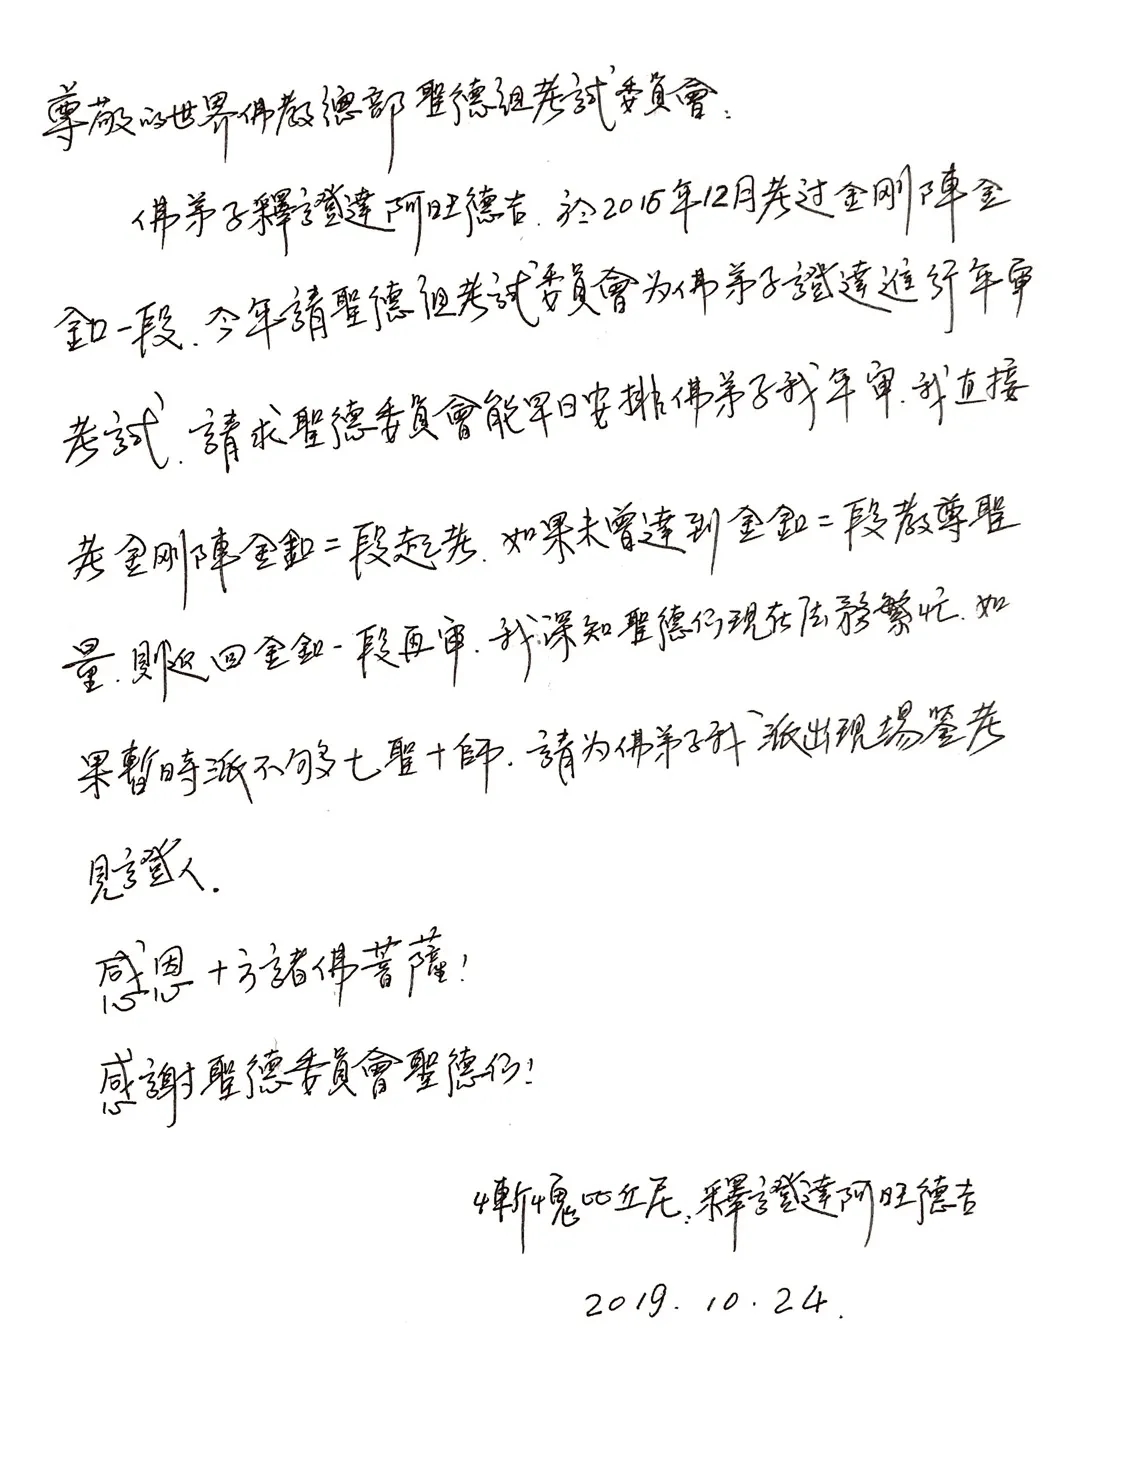 尊敬的世界佛教總部聖德組考試委員會:
佛弟子釋證達阿旺德吉.於2015年12月考过金刚陣金
釦一段.今年請聖德组考試委員會为佛弟子證達進行年审
考試.請求聖德委員會能早日安排佛弟子我年审.我直接
考金刚陣金釦二段起考.如果未曾達到金釦二段教尊聖
量.則返回金釦一段再审.我深知聖德们現在法務繁忙.如
果暫時派不够七聖十師.請为佛弟子我派出現場鉴考
見證人.
感恩十方諸佛菩薩!
感謝聖德委員會聖德们!
慚愧比丘尼:釋證達阿旺德吉
2019.10.24.